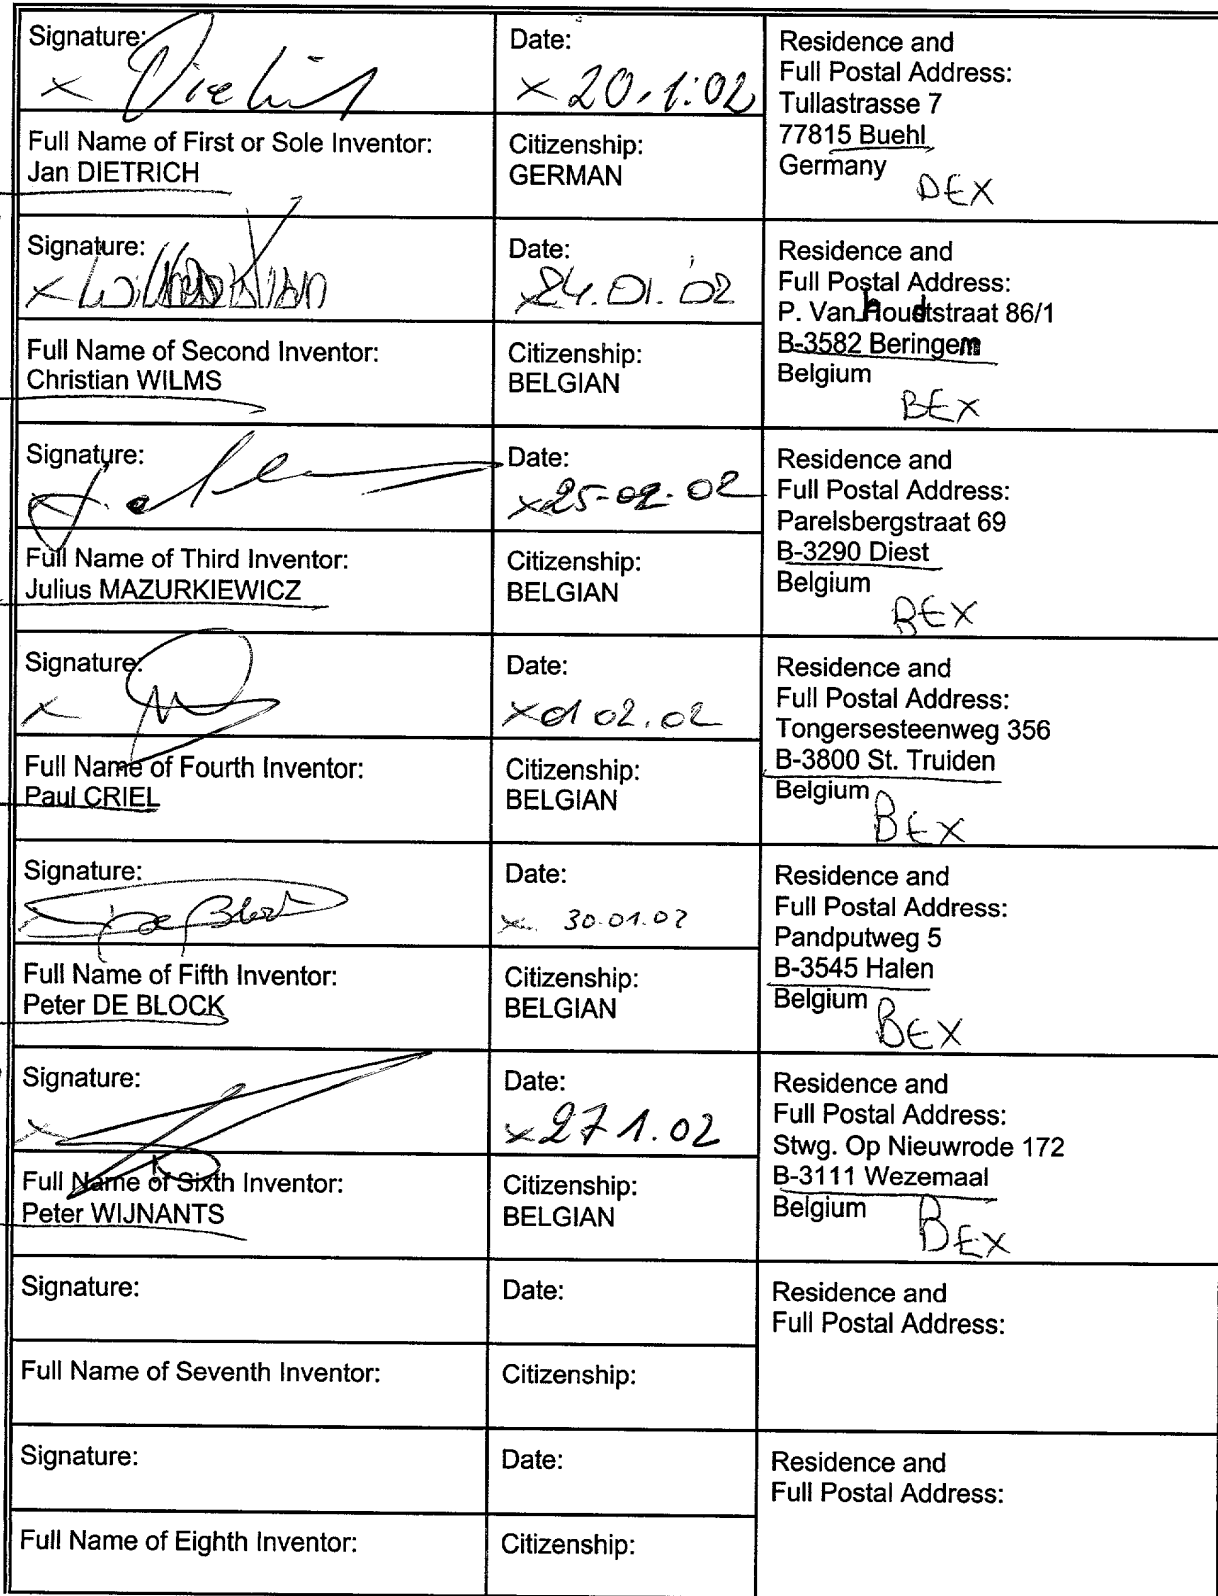 Signature:
Date:
× 20.1.02
Residence and
Full Postal Address:
Tullastrasse 7
77815 Buehl
Germany
DEX
Full Name of First or Sole Inventor:
Jan DIETRICH
Citizenship:
GERMAN
Signature:
Date:
×24.01.02
Residence and
Full Postal Address:
P. Van Houdtstraat 86/1
B-3582 Beringem
Belgium
BEX
Full Name of Second Inventor:
Christian WILMS
Citizenship:
BELGIAN
Signature:
Date:
×25-02-02
Residence and
Full Postal Address:
Parelsbergstraat 69
B-3290 Diest
Belgium
BEX
Full Name of Third Inventor:
Julius MAZURKIEWICZ
Citizenship:
BELGIAN
Signature:
Date:
×01 02.02
Residence and
Full Postal Address:
Tongersesteenweg 356
B-3800 St. Truiden
Belgium
BEX
Full Name of Fourth Inventor:
Paul CRIEL
Citizenship:
BELGIAN
Signature:
De Block
Date:
× 30.01.02
Residence and
Full Postal Address:
Pandputweg 5
B-3545 Halen
Belgium
BEX
Full Name of Fifth Inventor:
Peter DE BLOCK
Citizenship:
BELGIAN
Signature:
Date:
×27 1.02
Residence and
Full Postal Address:
Stwg. Op Nieuwrode 172
B-3111 Wezemaal
Belgium
BEX
Full Name of Sixth Inventor:
Peter WIJNANTS
Citizenship:
BELGIAN
Signature:
Date:
Residence and
Full Postal Address:
Full Name of Seventh Inventor:
Citizenship:
Signature:
Date:
Residence and
Full Postal Address:
Full Name of Eighth Inventor:
Citizenship: